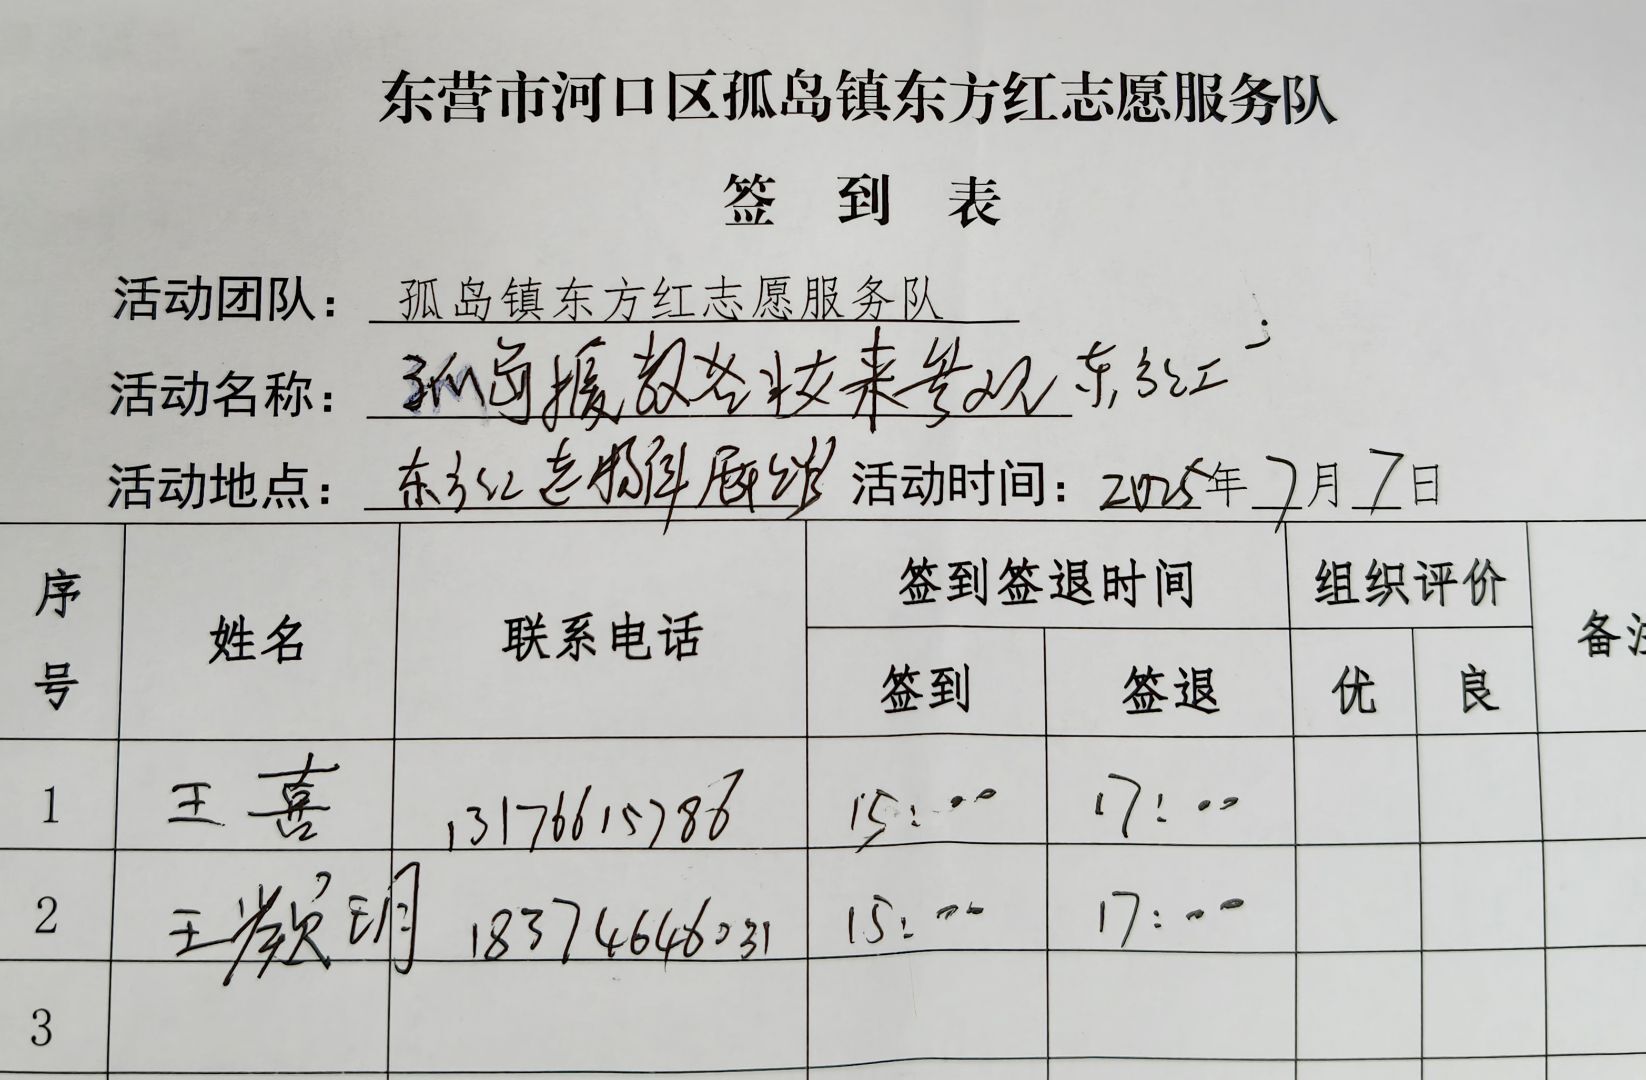 东营市河口区孤岛镇东方红志愿服务队
签 到 表
活动团队: 孤岛镇东方红志愿服务队
活动名称: 孤岛援教老 来参观东方红
活动地点: 东方红 展馆 活动时间: 2025年7月7日
序号 姓名 联系电话 签到签退时间 组织评价 备注
签到 签退 优 良
1 王喜 13176615786 15:00 17:00
2 王 玥 18374646031 15:00 17:00
3